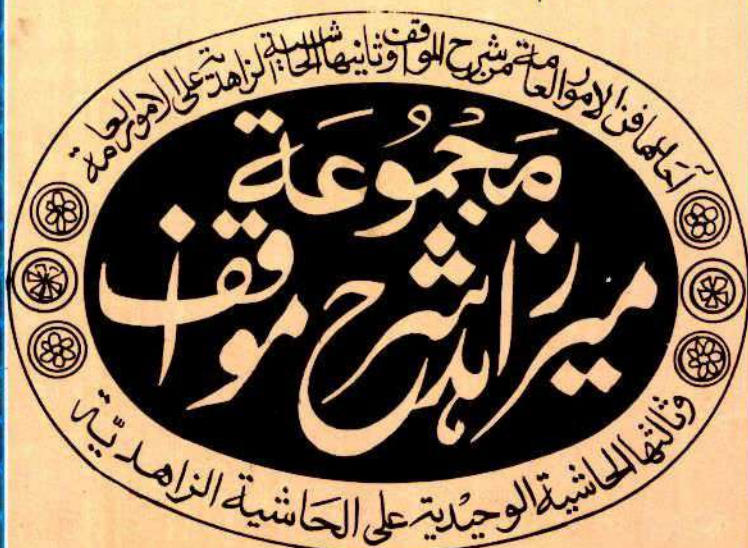 احداها فن الامور العامة من شرح المواقف وثانيها الحاشية الزاهدية على الامور العامة
مجموعة
میر زاهد شرح مواقف
وثالثها الحاشية الوحيدية على الحاشية الزاهدية